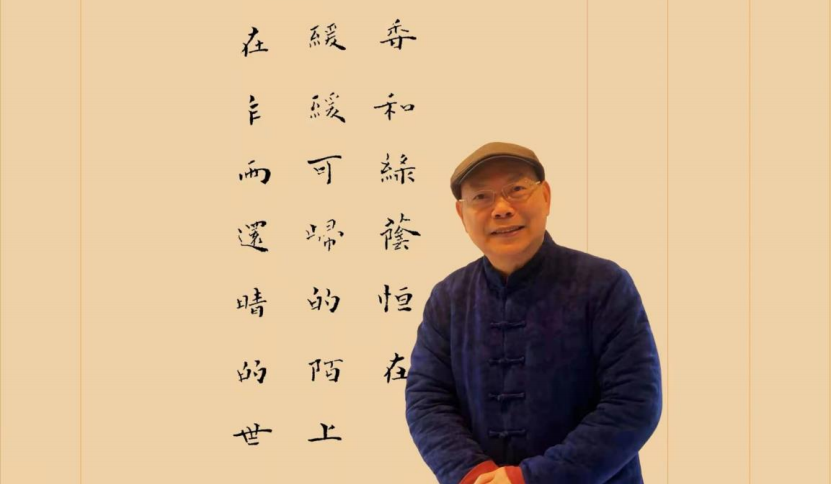 香和綠蔭恒在
緩緩可歸的陌上
在乍雨還晴的世